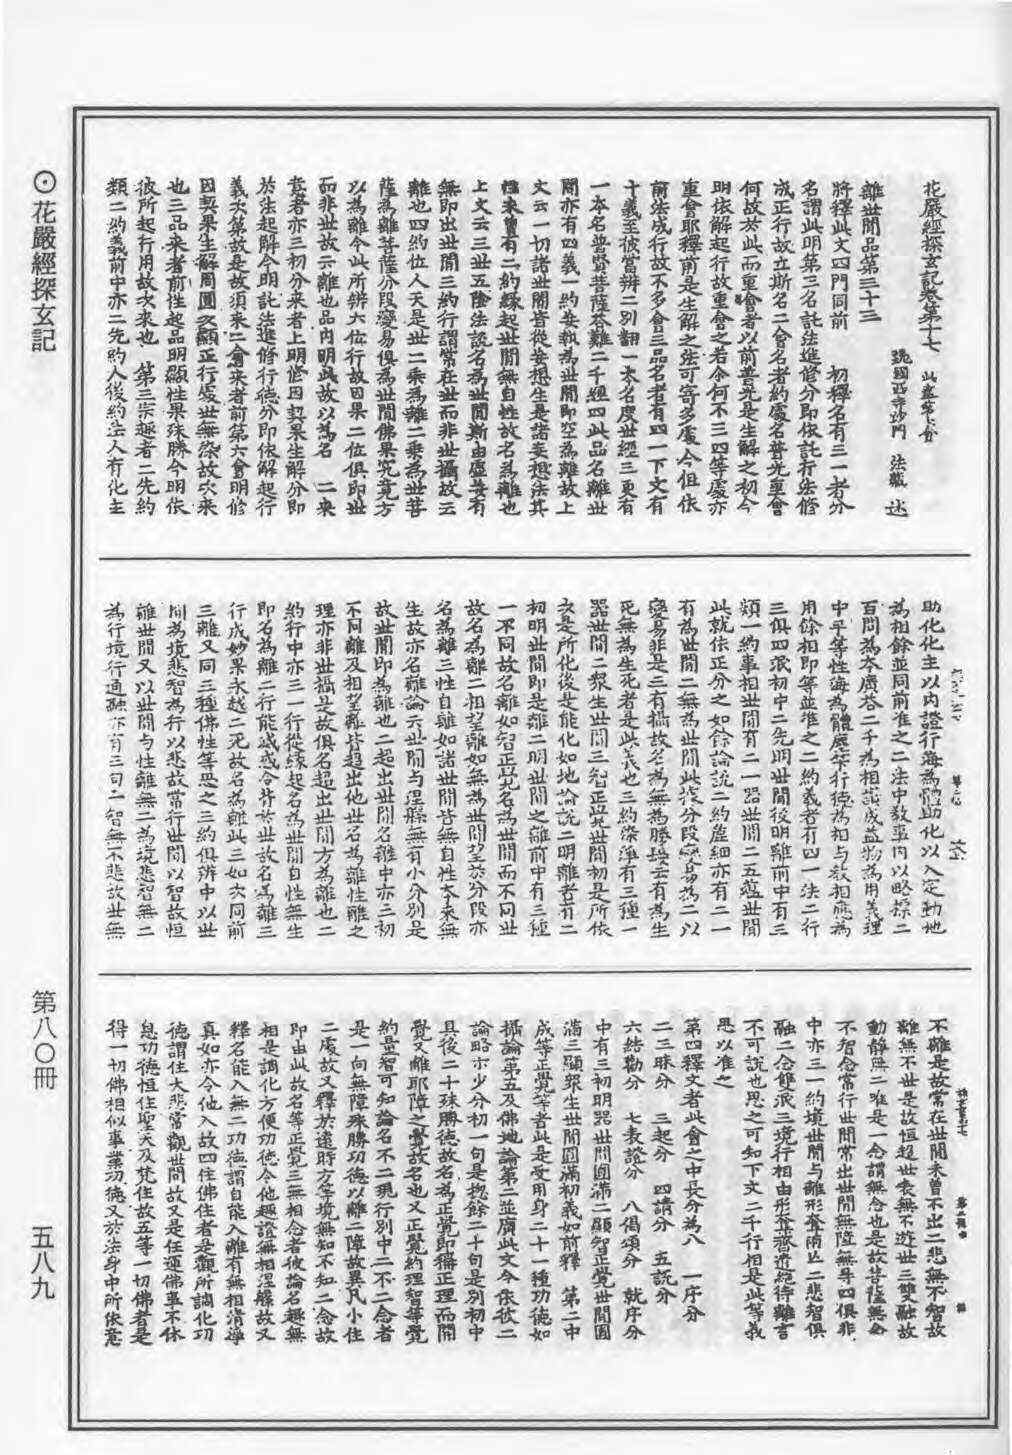 花嚴經探玄記卷第十七 此盡第七會
魏國西寺沙門 法藏 述
離世間品第三十三
將釋此文四門同前 初釋名有三一者分
名謂此明第三名託法進修分即依託行法修
成正行故立斯名二會名者約處名普光重會
何故於此而重會者以前普光是生解之初今
明依解起行故重會之若令何不三四等處亦
重會耶釋前是生解之法可寄多處今但依
前法成行故不多會三品名者有四一下文有
十義至彼當辨二別翻一本名度世經三更有
一本名普賢菩薩荅難二千經四此品名離世
間亦有四義一約妄執為世間即空為離故上
文云一切諸世間皆從妄想生是諸妄想法其
性未曾有二約緣起世間無自性故名為離也
上文云三世五陰法說名為世間斯由虛妄有
無即出世間三約行謂常在世而非世攝故云
離也四約位人天是世二乘為離二乘為世菩
薩為離菩薩分段變易俱為世間佛果究竟方
以為離今此所辨六位行故因果二位俱即世
而非世故云離也品內明此故以為名 二來
意者亦三初分來者上明修因契果生解分即
於法起解今明託法進修行德分即依解起行
義次第故是故須來二會來者前第六會明修
因契果生解周圓次顯正行處世無染故次來
也三品來者前性起品明顯性果殊勝今明依
彼所起行用故次來也 第三宗趣者二先約
類二約義前中亦二先約人後約法人有化主
助化化主以內證行海為體助化以入定動地
為相餘並同前准之二法中教事內以略標二
百問為本廣荅二千為相說成益物為用義理
中平等性海為體歷等行德為相與教相應為
用餘相即等並准之二約義者有四一法二行
三俱四泯初中二先明世間後明離前中有三
類一約事相世間有二一器世間二五蘊世間
此就依正分之如餘論說二約麁細亦有二一
有為世間二無為世間此據分段變易為二以
變易非是三有攝故名為無為勝鬘云有為生
死無為生死者是此義也三約染淨有三種一
器世間二眾生世間三智正覺世間初是所依
次是所化後是能化如地論說二明離者有二
初明世間即是離二明世間之離前中有三種
一不同故名離如智正覺名為世間而不同世
故名為離二相望離如無為世間望於分段亦
名為離三性自離如諸世間皆無自性本來無
生故亦名離論云世間与涅槃無有小分別是
故世間即為離也二起出世間名離中亦三初
不同離及相望離皆超出他世名為離性離之
理亦非世攝是故俱名超出世間方為離也二
約行中亦三一行從緣起名為世間自性無生
即名為離二行能滅惑令背於世故名為離三
行成妙果永越二死故名為離此三如次同前
三離又同三種佛性等思之三約俱辨中以世
間為境悲智為行以悲故常行世間以智故恒
離世間又以世間与性離無二為境悲智無二
為行境行通融亦有三句一智無不悲故世無
不離是故常在世間未曾不出二悲無不智故
離無不世是故恒超世表無不遊世三雙融故
動靜無二唯是一念謂無念也是故菩薩無念
不智念常行世間常出世間無障無㝵四俱非
中亦三一約境世間与離形奪兩亡二悲智俱
融二念雙泯三境行相由形奪齊遣絕待離言
不可說也思之可知下文二千行相是此等義
思以准之
第四釋文者此會之中長分為八 一序分
二三昧分 三起分 四請分 五說分
六結勸分 七表證分 八偈頌分 就序分
中有三初明器世間圓滿二顯智正覺世間圓
滿三顯眾生世間圓滿初義如前釋 第二中
成等正覺等者此是受用身二十一種功德如
攝論第五及佛地論第二並廣此文今依彼二
論略亦少分初一句是捴餘二十句是別初中
具後二十殊勝德故名為正覺即稱正理而開
覺又離耶障之覺故名也又正覺約理智等覺
約量智可知論名不二現行別中二不二念者
是一向無障殊勝功德以離二障故異凡小住
二處故又釋於遠時方等境無知不知二念故
即由此故名等正覺三無相念者彼論名趣無
相是調化方便功德令他趣證無相涅槃故又
釋名能入無二功德謂自能入離有無相清淨
真如亦令他入故四住佛住者是觀所調化功
德謂住大悲常觀世間故又是任運佛事不休
息功德恒住聖天及梵住故五等一切佛者是
得一切佛相似事業功德又於法身中所依意
⊙花嚴經探玄記
第八〇冊
五八九